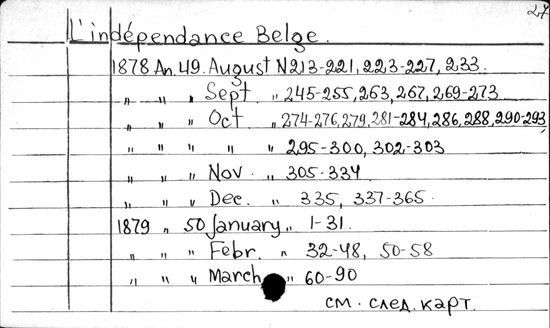 27
L'indépendance Belge.
1878 An. 49. August N 213-221, 223-227, 233.
„ „ „ Sept „ 245-255, 263, 267, 269-273
„ „ „ Oct „ 274-276, 279, 281-284, 286, 288, 290-293,
„ „ „ „ „ 295-300, 302-303
„ „ „ Nov. „ 305-334
„ „ „ Dec. „ 335, 337-365.
1879 „ 50 January „ 1-31.
„ „ „ Febr. „ 32-48, 50-58
„ „ „ March „ 60-90
см. след. карт.